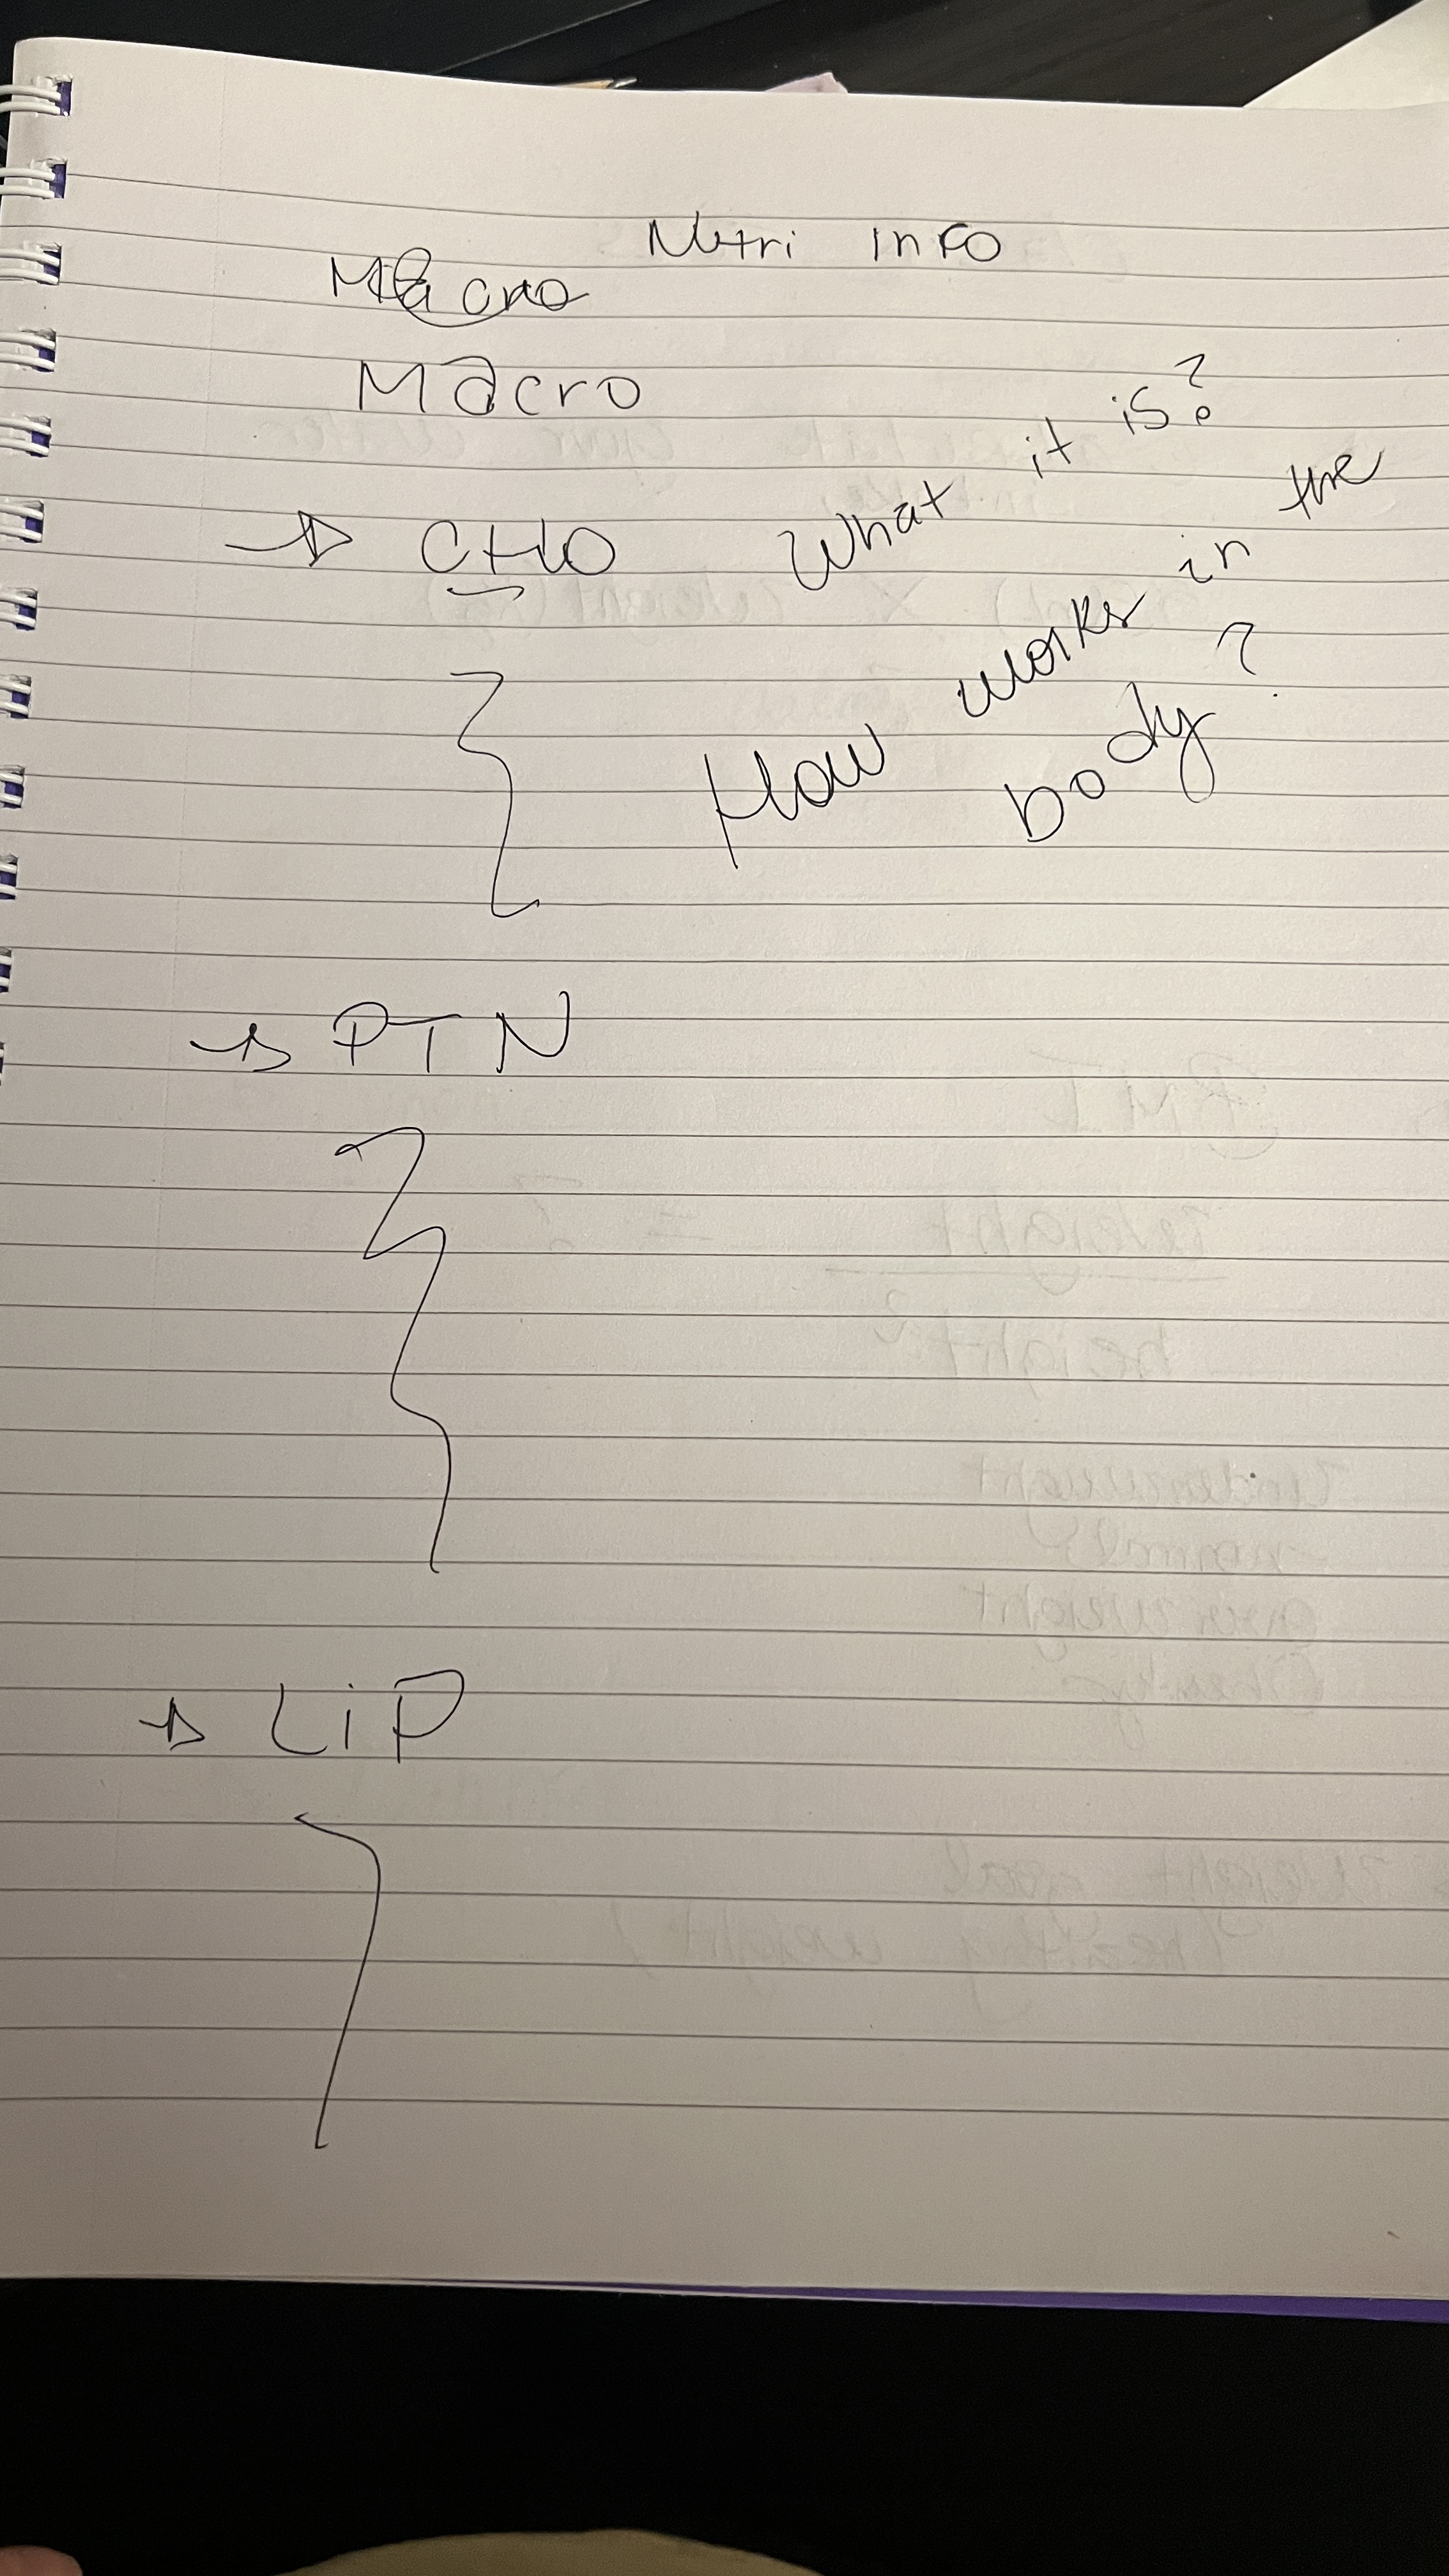 Nutri Info
Macro
Macro
→ CHO
What it is?
How works in the
body?
→ PTN
→ LiP